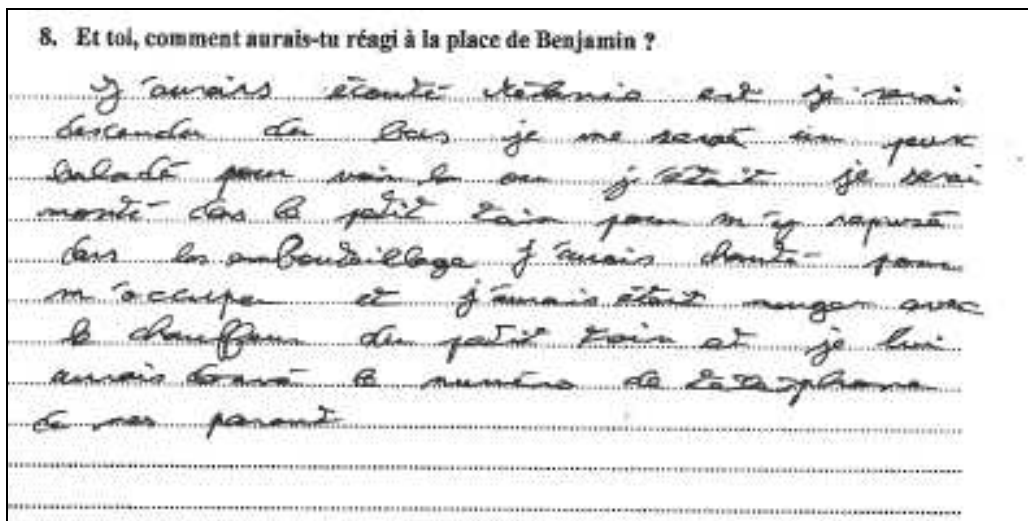 8. Et toi, comment aurais-tu réagi à la place de Benjamin ?
J'aurais écouté est je serai
descendu du bus je me serai um peux
baladé pour voir la ou j'était je serai
monté dans le petit train pour m'y reposé
dans les embouteillage j'aurais chanté pour
m'occuper et j'aurais était manger avec
le chauffeur du petit train et je lui
aurais donné le numéro de telephone
de mes parent